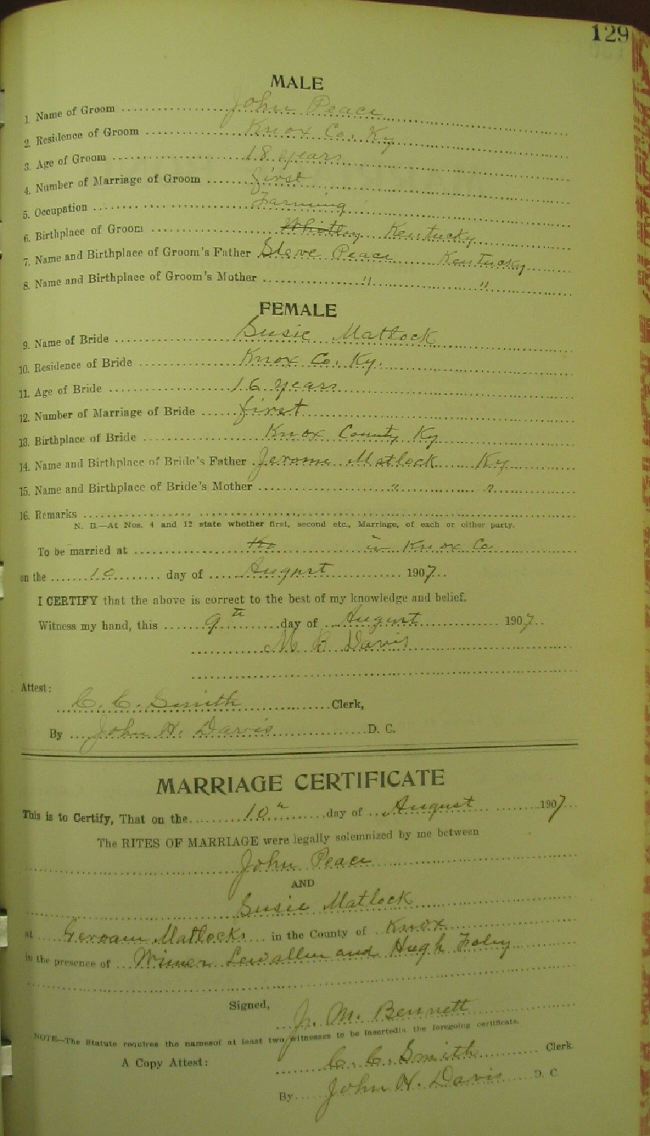 129
MALE
1. Name of Groom John Peace
2. Residence of Groom Knox Co. Ky
3. Age of Groom 18 years
4. Number of Marriage of Groom first
5. Occupation Farming
6. Birthplace of Groom Whitley Kentucky
7. Name and Birthplace of Groom's Father Steve Peace Kentucky
8. Name and Birthplace of Groom's Mother " "
FEMALE
9. Name of Bride Susie Matlock
10. Residence of Bride Knox Co. Ky.
11. Age of Bride 16 years
12. Number of Marriage of Bride first
13. Birthplace of Bride Knox County Ky
14. Name and Birthplace of Bride's Father Jerome Matlock Ky
15. Name and Birthplace of Bride's Mother " "
16. Remarks
N. B.—At Nos. 4 and 12 state whether first, second etc., Marriage, of each or either party.
To be married at in Knox Co
on the 10 day of August 1907
I CERTIFY that the above is correct to the best of my knowledge and belief.
Witness my hand, this 9th day of August 1907
M B Davis
Attest:
C. C. Smith Clerk,
By John H. Davis D. C.
MARRIAGE CERTIFICATE
This is to Certify, That on the 10" day of August 1907
The RITES OF MARRIAGE were legally solemnized by me between
John Peace
AND
Susie Matlock
at Geroam Matlocks in the County of Knox
in the presence of Lewallen and Hugh Foley
Signed,
J. M. Bennett
NOTE—The Statute requires the namesof at least two witnesses to be insertedin the foregoing certificate.
A Copy Attest: C. C. Smith Clerk
By John H. Davis D. C